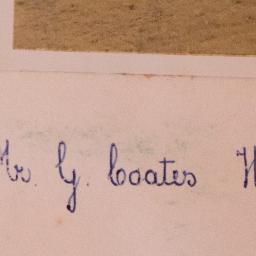 Mr. G. Coates